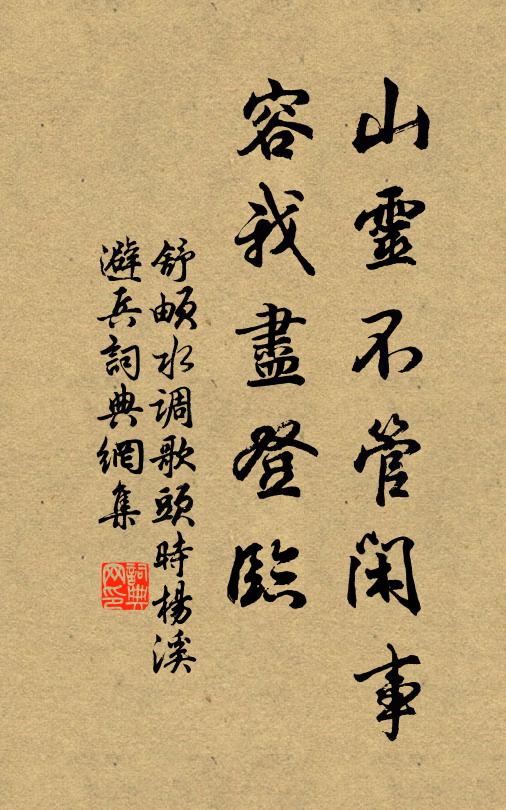 山靈不管閑事
容我盡登臨
舒頔水调歌頭時楊溪
避兵詞典網集
詞典网印